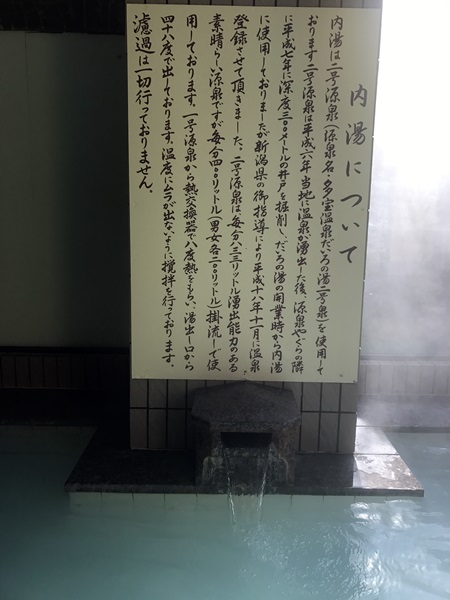 内湯について
内湯は二号源泉(源泉名・多宝温泉だいろの湯二号泉)を使用して
おります。二号源泉は平成六年当地に温泉が湧出した後、源泉やぐらの隣
に平成七年に深度三〇〇メートルの井戸を掘削し、だいろの湯の開業時から内湯
に使用しておりましたが新潟県の御指導により平成十八年十一月に温泉
登録させて頂きました。二号源泉は、毎分八三三リットル湧出能力のある
素晴らしい源泉ですが毎分四〇〇リットル(男女各二〇〇リットル)掛流しで使
用しております。一号源泉から熱交換器で八度熱をもらい、湯出し口から
四十八度で出しております。温度にムラが出ないように攪拌を行っております。
濾過は一切行っておりません。